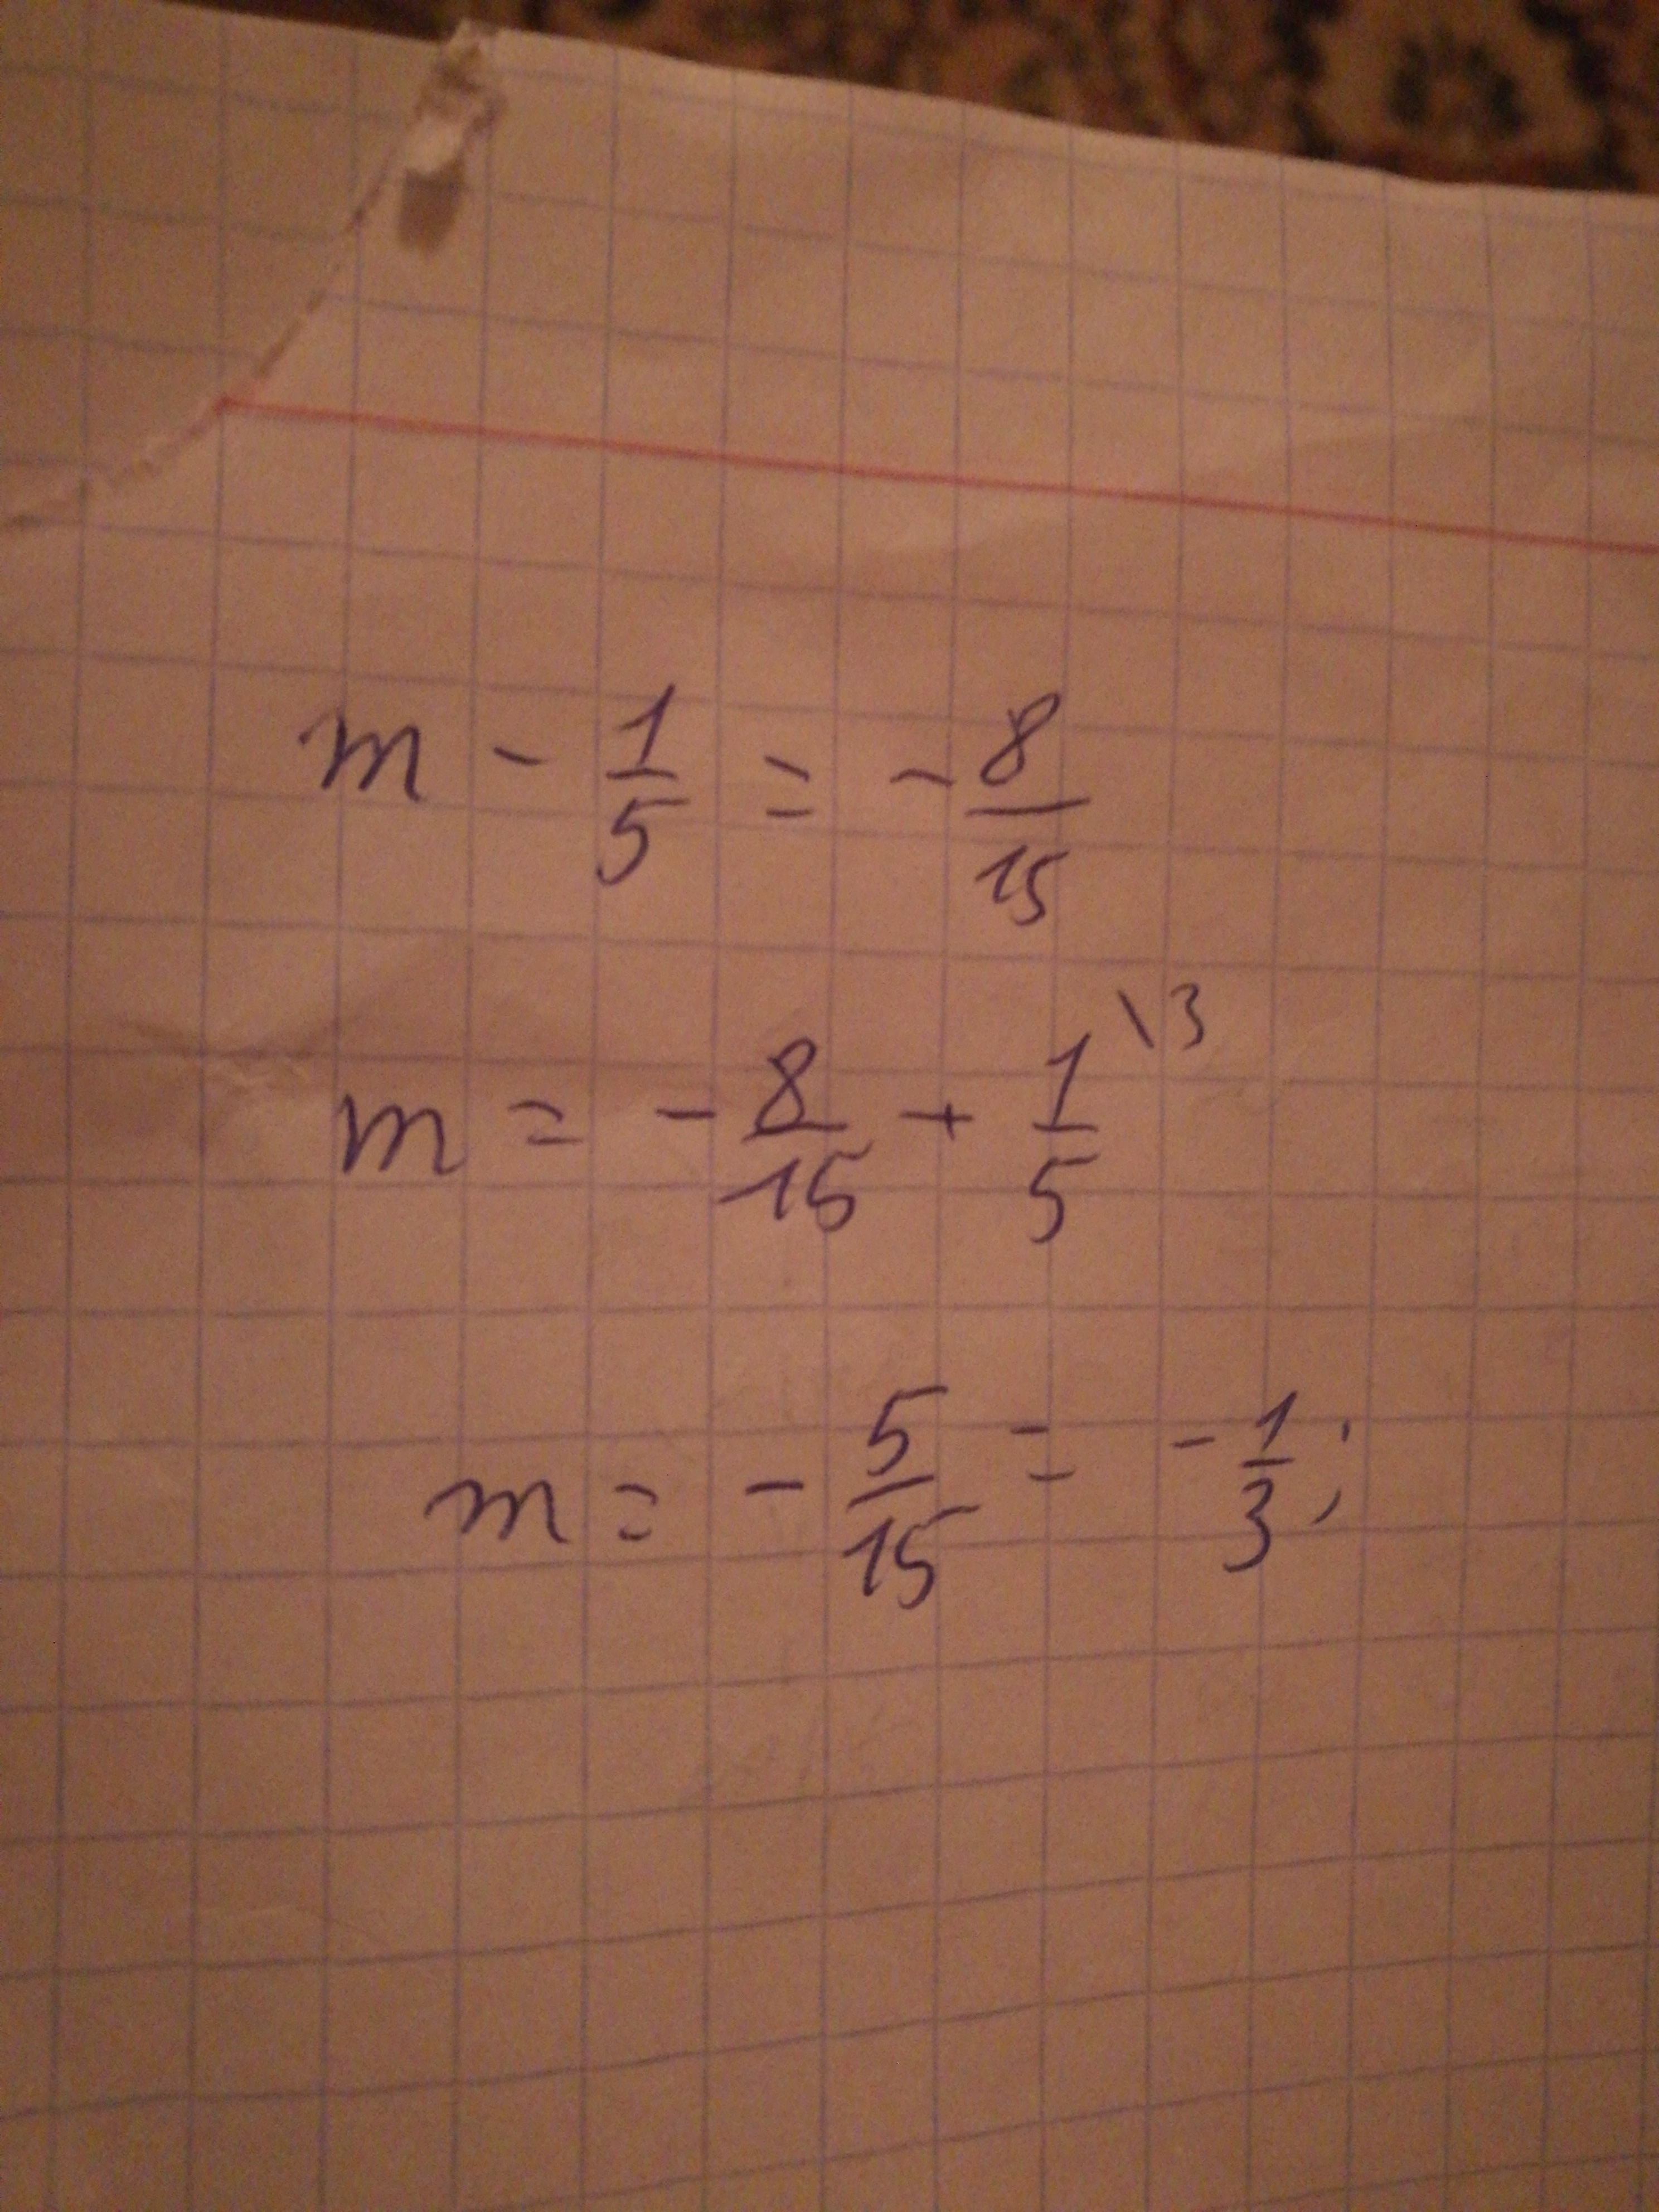 m - 1/5 = - 8/15
m = - 8/15 + 1/5 \3
m = - 5/15 = - 1/3;